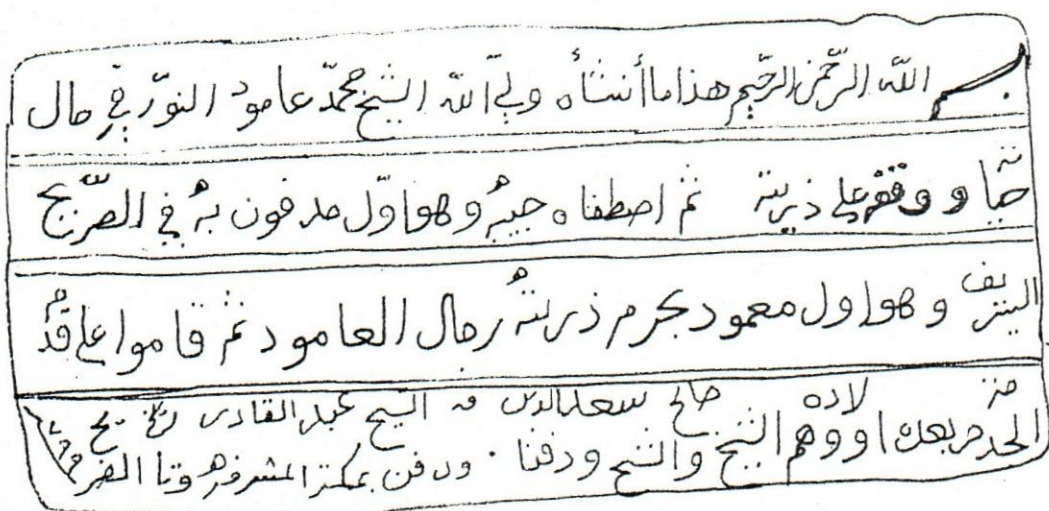 بسم الله الرحمن الرحيم هذا ما أنشأه وليّ الله الشيخ محمّد عامود النوّر في حال
حياته ووقفه على ذريته ثم اصطفاه حبيبهُ وهو اوّل مدفون بهُ في الضريح
الشريف وهو اول معمود بحرم ذريتهُ رجال العامود ثم قاموا على قدم
الخدمة من بعده اولاده وهم الشيخ صالح والشيخ سعد الدين ودفنا الشيخ عبد القادر ودفن بمكة المشرفة